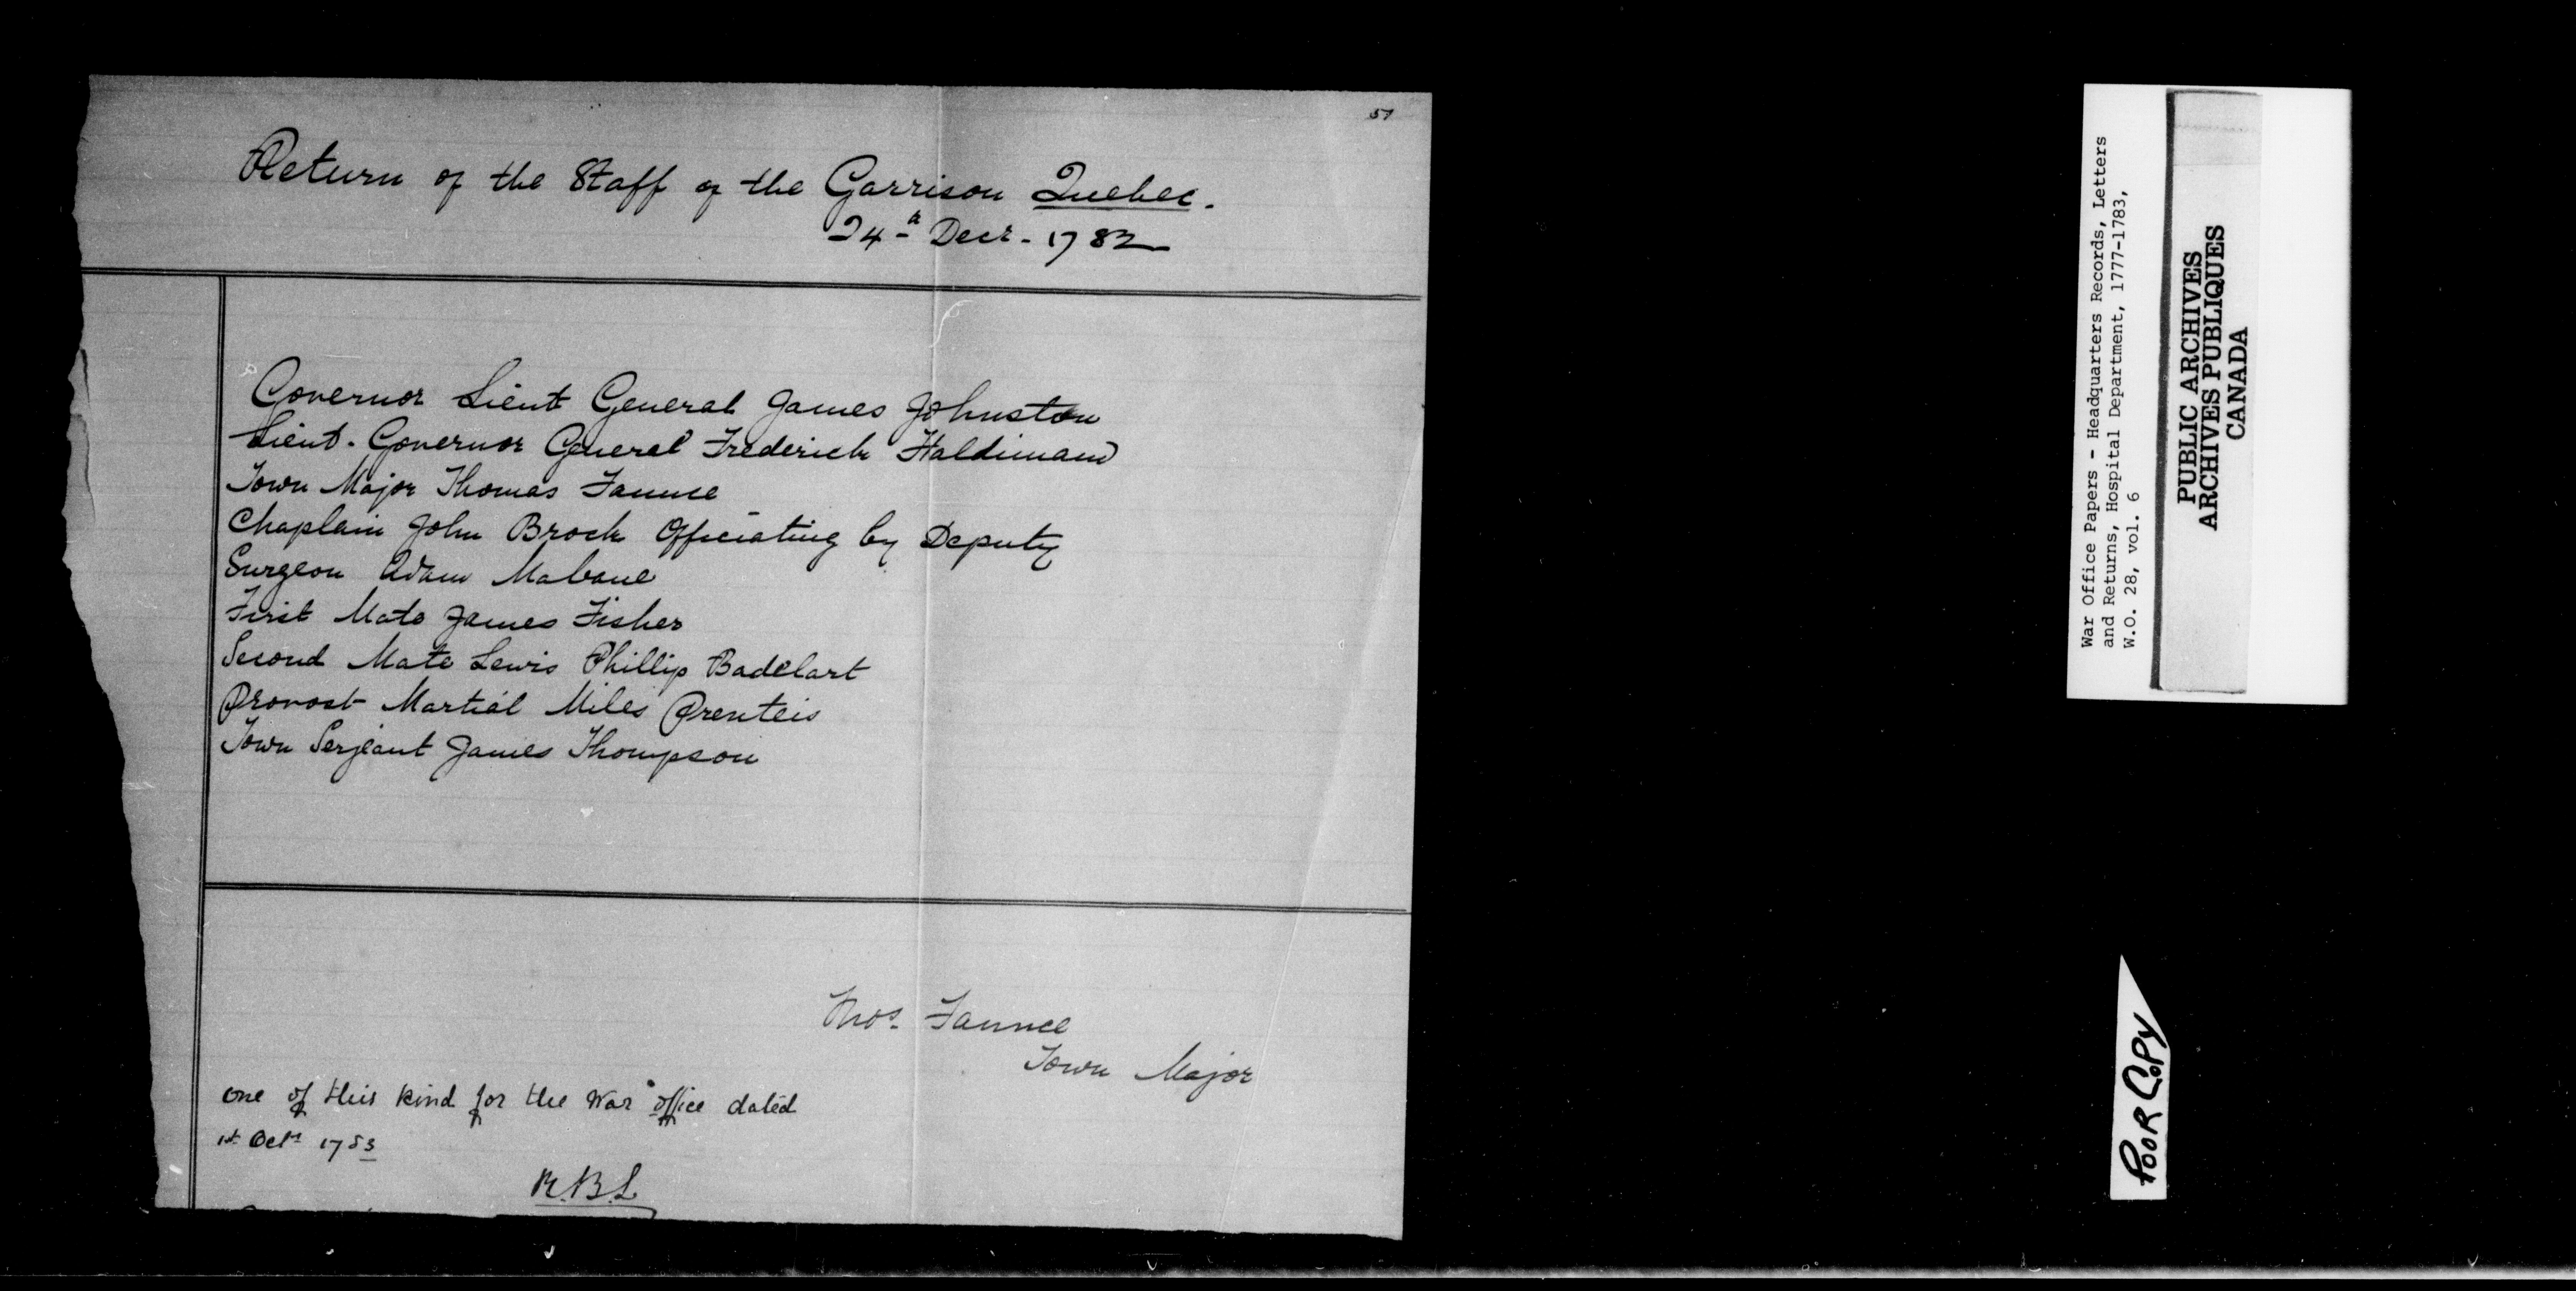 51
Return of the Staff of the Garrison Quebec.
24th Decr. 1782
Governor Lieut General James Johnston
Lieut. Governor General Frederick Haldimand
Town Major Thomas Faunce
Chaplain John Brock Officiating by Deputy
Surgeon Adam Mabane
First Mate James Fisher
Second Mate Lewis Phillip Badelart
Provost Martial Miles Prenteis
Town Serjeant James Thompson
Thos. Faunce
Town Major
one of this kind for the War office dated
1st Octr 1783
R.B.L
War Office Papers - Headquarters Records, Letters
and Returns, Hospital Department, 1777-1783,
W.O. 28, vol. 6
PUBLIC ARCHIVES
ARCHIVES PUBLIQUES
CANADA
POOR COPY